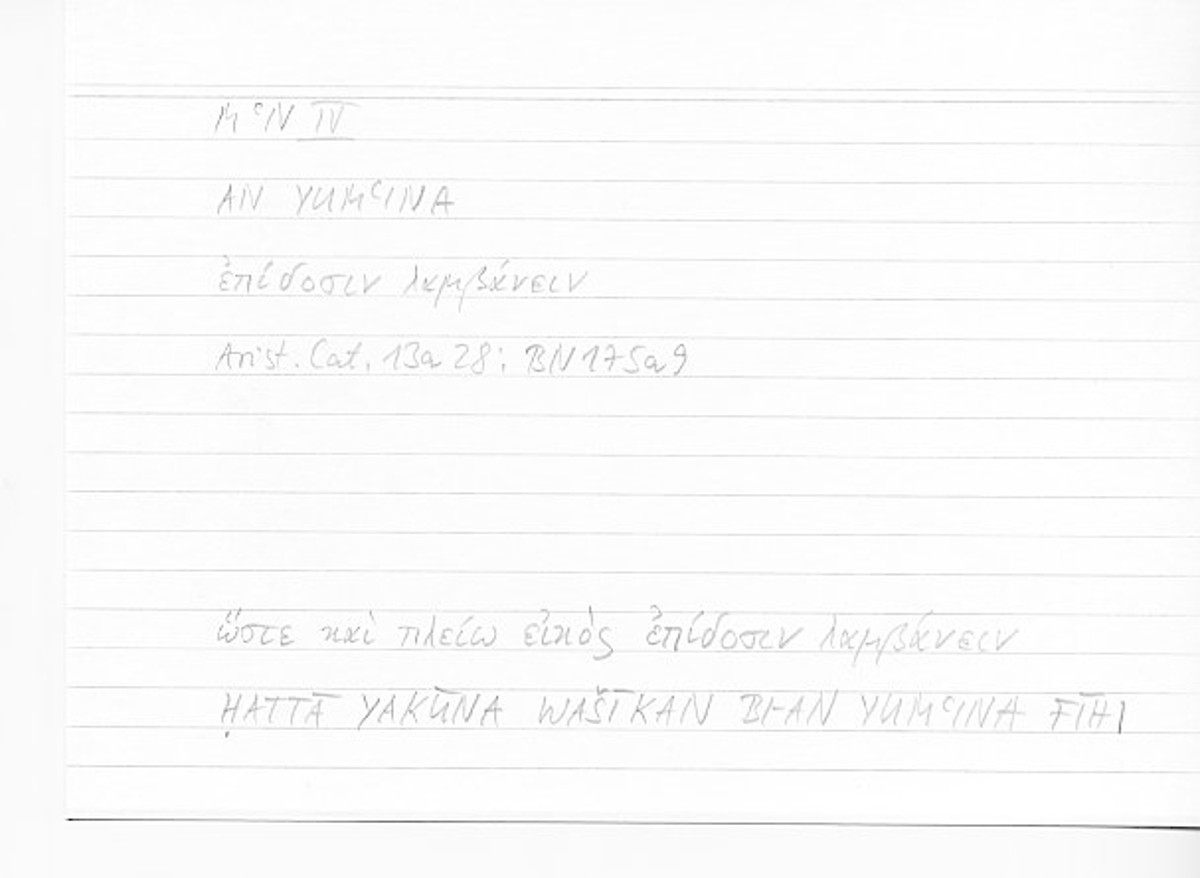 MʿN IV
AN YUMʿINA
ἐπίδοσιν λαμβάνειν
Arist. Cat. 13a 28; BN 175a9
ὥστε καὶ πλείω εἰκὸς ἐπίδοσιν λαμβάνειν
ḤATTĀ YAKŪNA WAŠĪKAN BI-AN YUMʿINA FĪHI